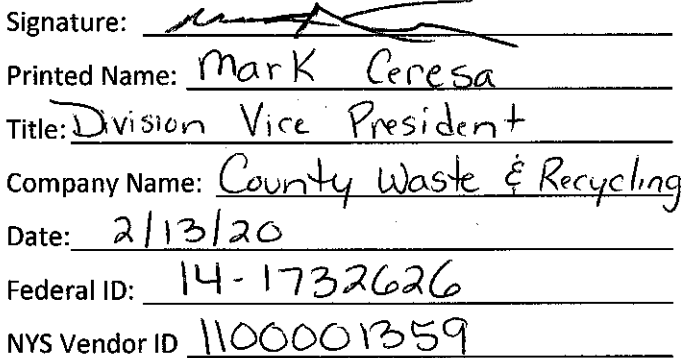 Signature:
Printed Name: Mark Ceresa
Title: Division Vice President
Company Name: County Waste & Recycling
Date: 2/13/20
Federal ID: 14-1732626
NYS Vendor ID 1100001359